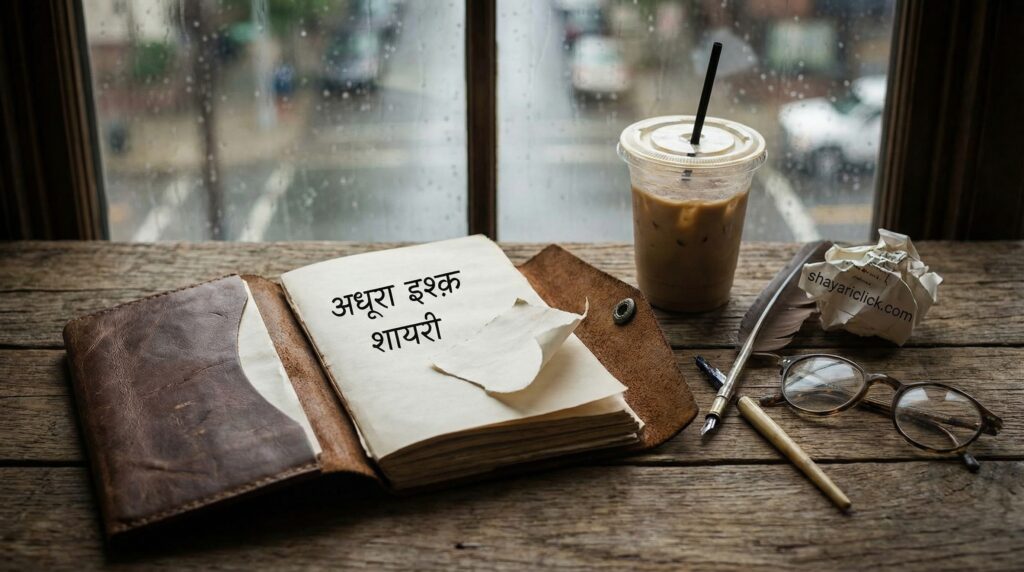 अधूरा इश्क़
शायरी
shayariclick.com